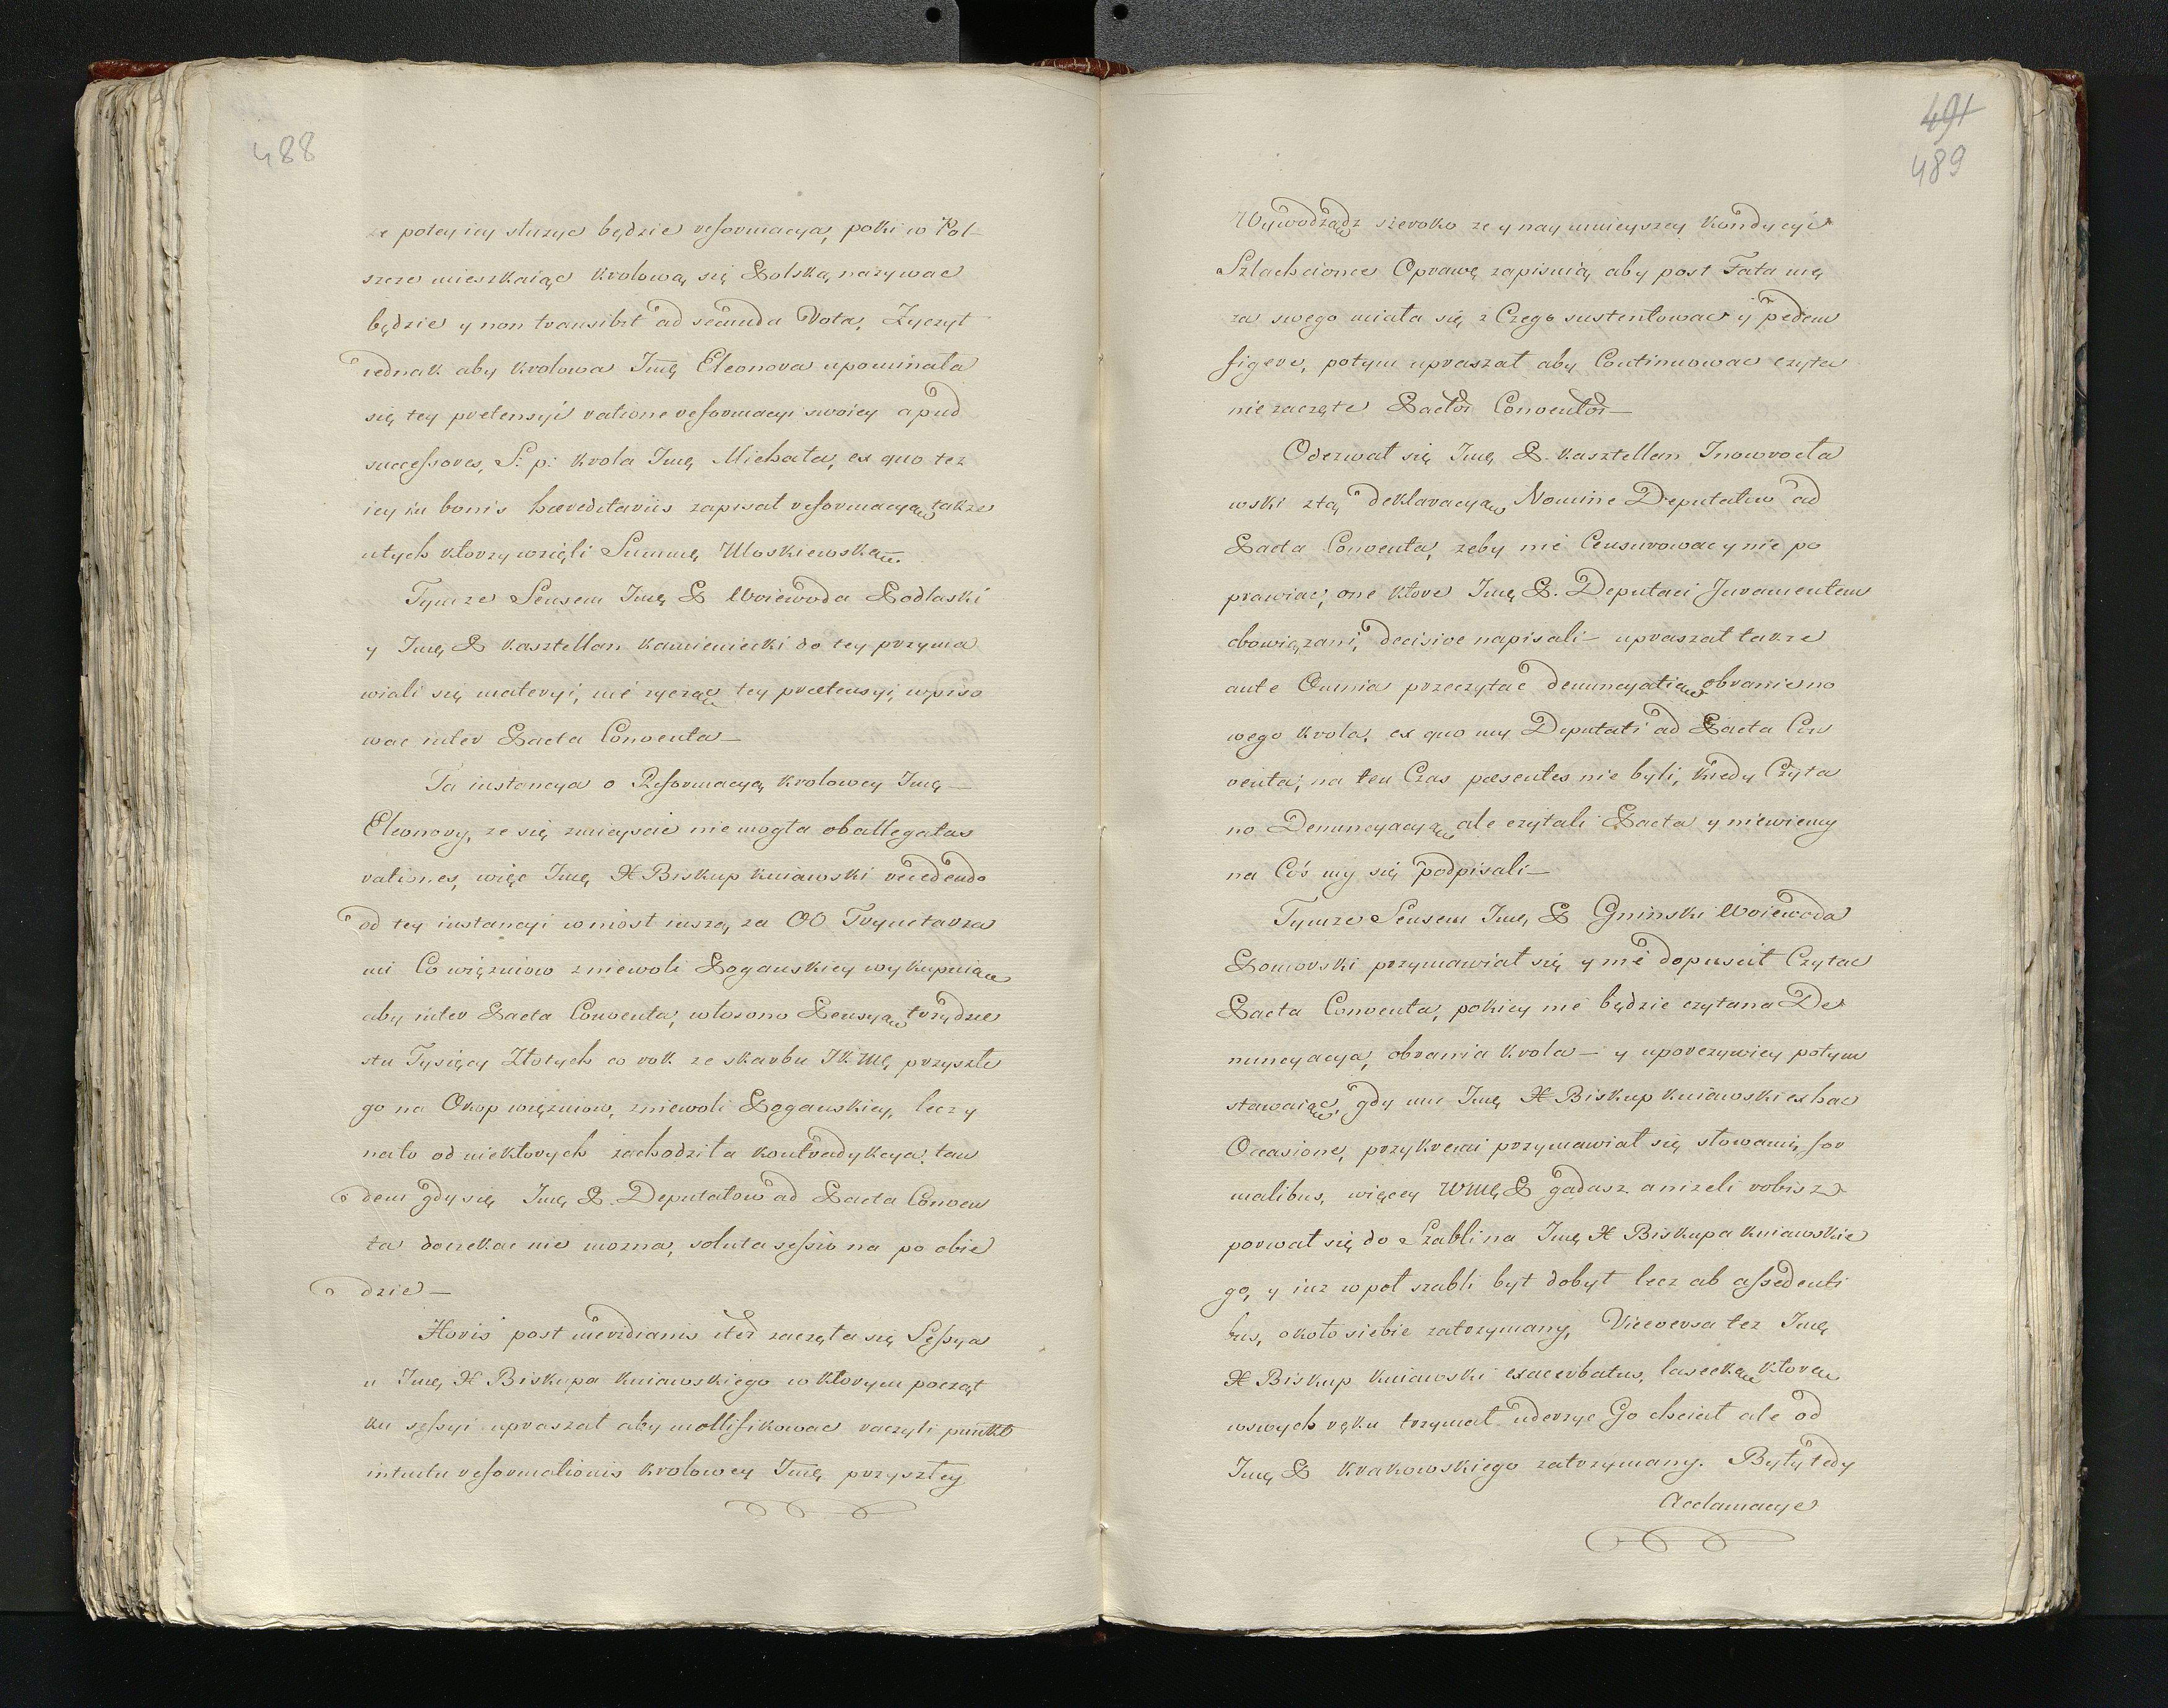 488
że potey iey słuzyc będzie reformacya, poki w Pol-
szcze mieszkaiąc krolową się Polską nazywac
będzie y non transibit ad secunda Vota, Zyczył
iednak aby krolowa Jmę Eleonora upominała
się tey pretensyi ratione reformacyi swoiey apud
successores, S: p: krola Jmę Michała, ex quo tez
iey in bonis haereditariis zapisał reformacyą takze
utych ktorzy wzięli Summę Włoskiewską
Tymze Sensem Jmę P Woiewoda Podlaski
y Jmę P kasztellan kamieniecki do tey przyma
wiali się materyi, nie zycząc tey praetensyi, wpiso
wac inter Pacta Conventa—
Ta instancya o Reformacyą krolowey Jmę—
Eleonory, ze się zmieyscie nie mogła ob allegatas
rationes, więc Jmę X Biskup kuiawski recedendo
od tey instancyi wniosł inszą za OO Trynetarza
mi Co więzniow zniewoli Poganskiey wykupuią
aby inter Pacta Conventa, włosono Pensyą trzydzie
stu Tysięcy Złotych co rok ze skarbu JKMę przyszłe
go na Okup więzniow, zniewoli Poganskiey, lecz y
nato od niektorych zachodziła kontradykcya, tan
dem gdy się Jmę P. Deputatow ad Pacta Conven
ta doczekac nie mozna, soluta sessio na po obie
dzie—
Horis post meridianis iter zaczęła się Sessya
u Jmę X Biskupa kuiawskiego w ktorym począt
ku sessyi upraszał aby mollifikowac raczyli punkt
intuitu reformationis krolowey Jmę przyszłey
491
489
Wywodząc szeroko ze y naymnieyszey kondycyi
Szlachcionce Oprawę zapisuią aby post Fata mę
za swego miała się z Czego sustentowac y pedem
figere, potym upraszał aby Continuowac czyta
nie zaczęte Pactor Conventor—
Odezwał się Jmę P. kasztellan Inowrocła
wski ztą deklaracyą Nomine Deputatow ad
Pacta Conventa, zeby nie Censurowac y nie po
prawiac, one ktore Jmę P. Deputaci Juramentem
obowiązani, decisive napisali— upraszał takze
ante Omnia przeczytac denuncyatią obranie no
wego krola, ex quo my Deputati ad Pacta Con
venta, na ten Czas praesentes nie byli, kiedy Czyta
no Denuncyacyą ale czytali Pacta y niewiemy
na Coś my się podpisali—
Tymze Sensem Jmę P Gninski Woiewoda
Pomorski przymawiał się y nie dopuscił Czytac
Pacta Conventa, pokiey nie będzie czytana De
nuncyacya, obrania krola— y uporczywiey potym
stawaiąc, gdy mu Jmę X Biskup kuiawski ex hac
Occasione, przykremi przymawiał się słowami, for
malibus, więcey WMę P gadasz anizeli robisz
porwał się do Szabli na Jmę X Biskupa kuiawskie
go, y iuz w poł szabli był dobył lecz ab assedenti
bus, około siebie zatrzymany, Viceversa tez Jmę
X Biskup kuiawski exacerbatus, laseczką ktorą
wswych ręku trzymał uderzyc Go chciał ale od
Jmę P krakowskiego zatrzymany. Były tedy
Acclamacye